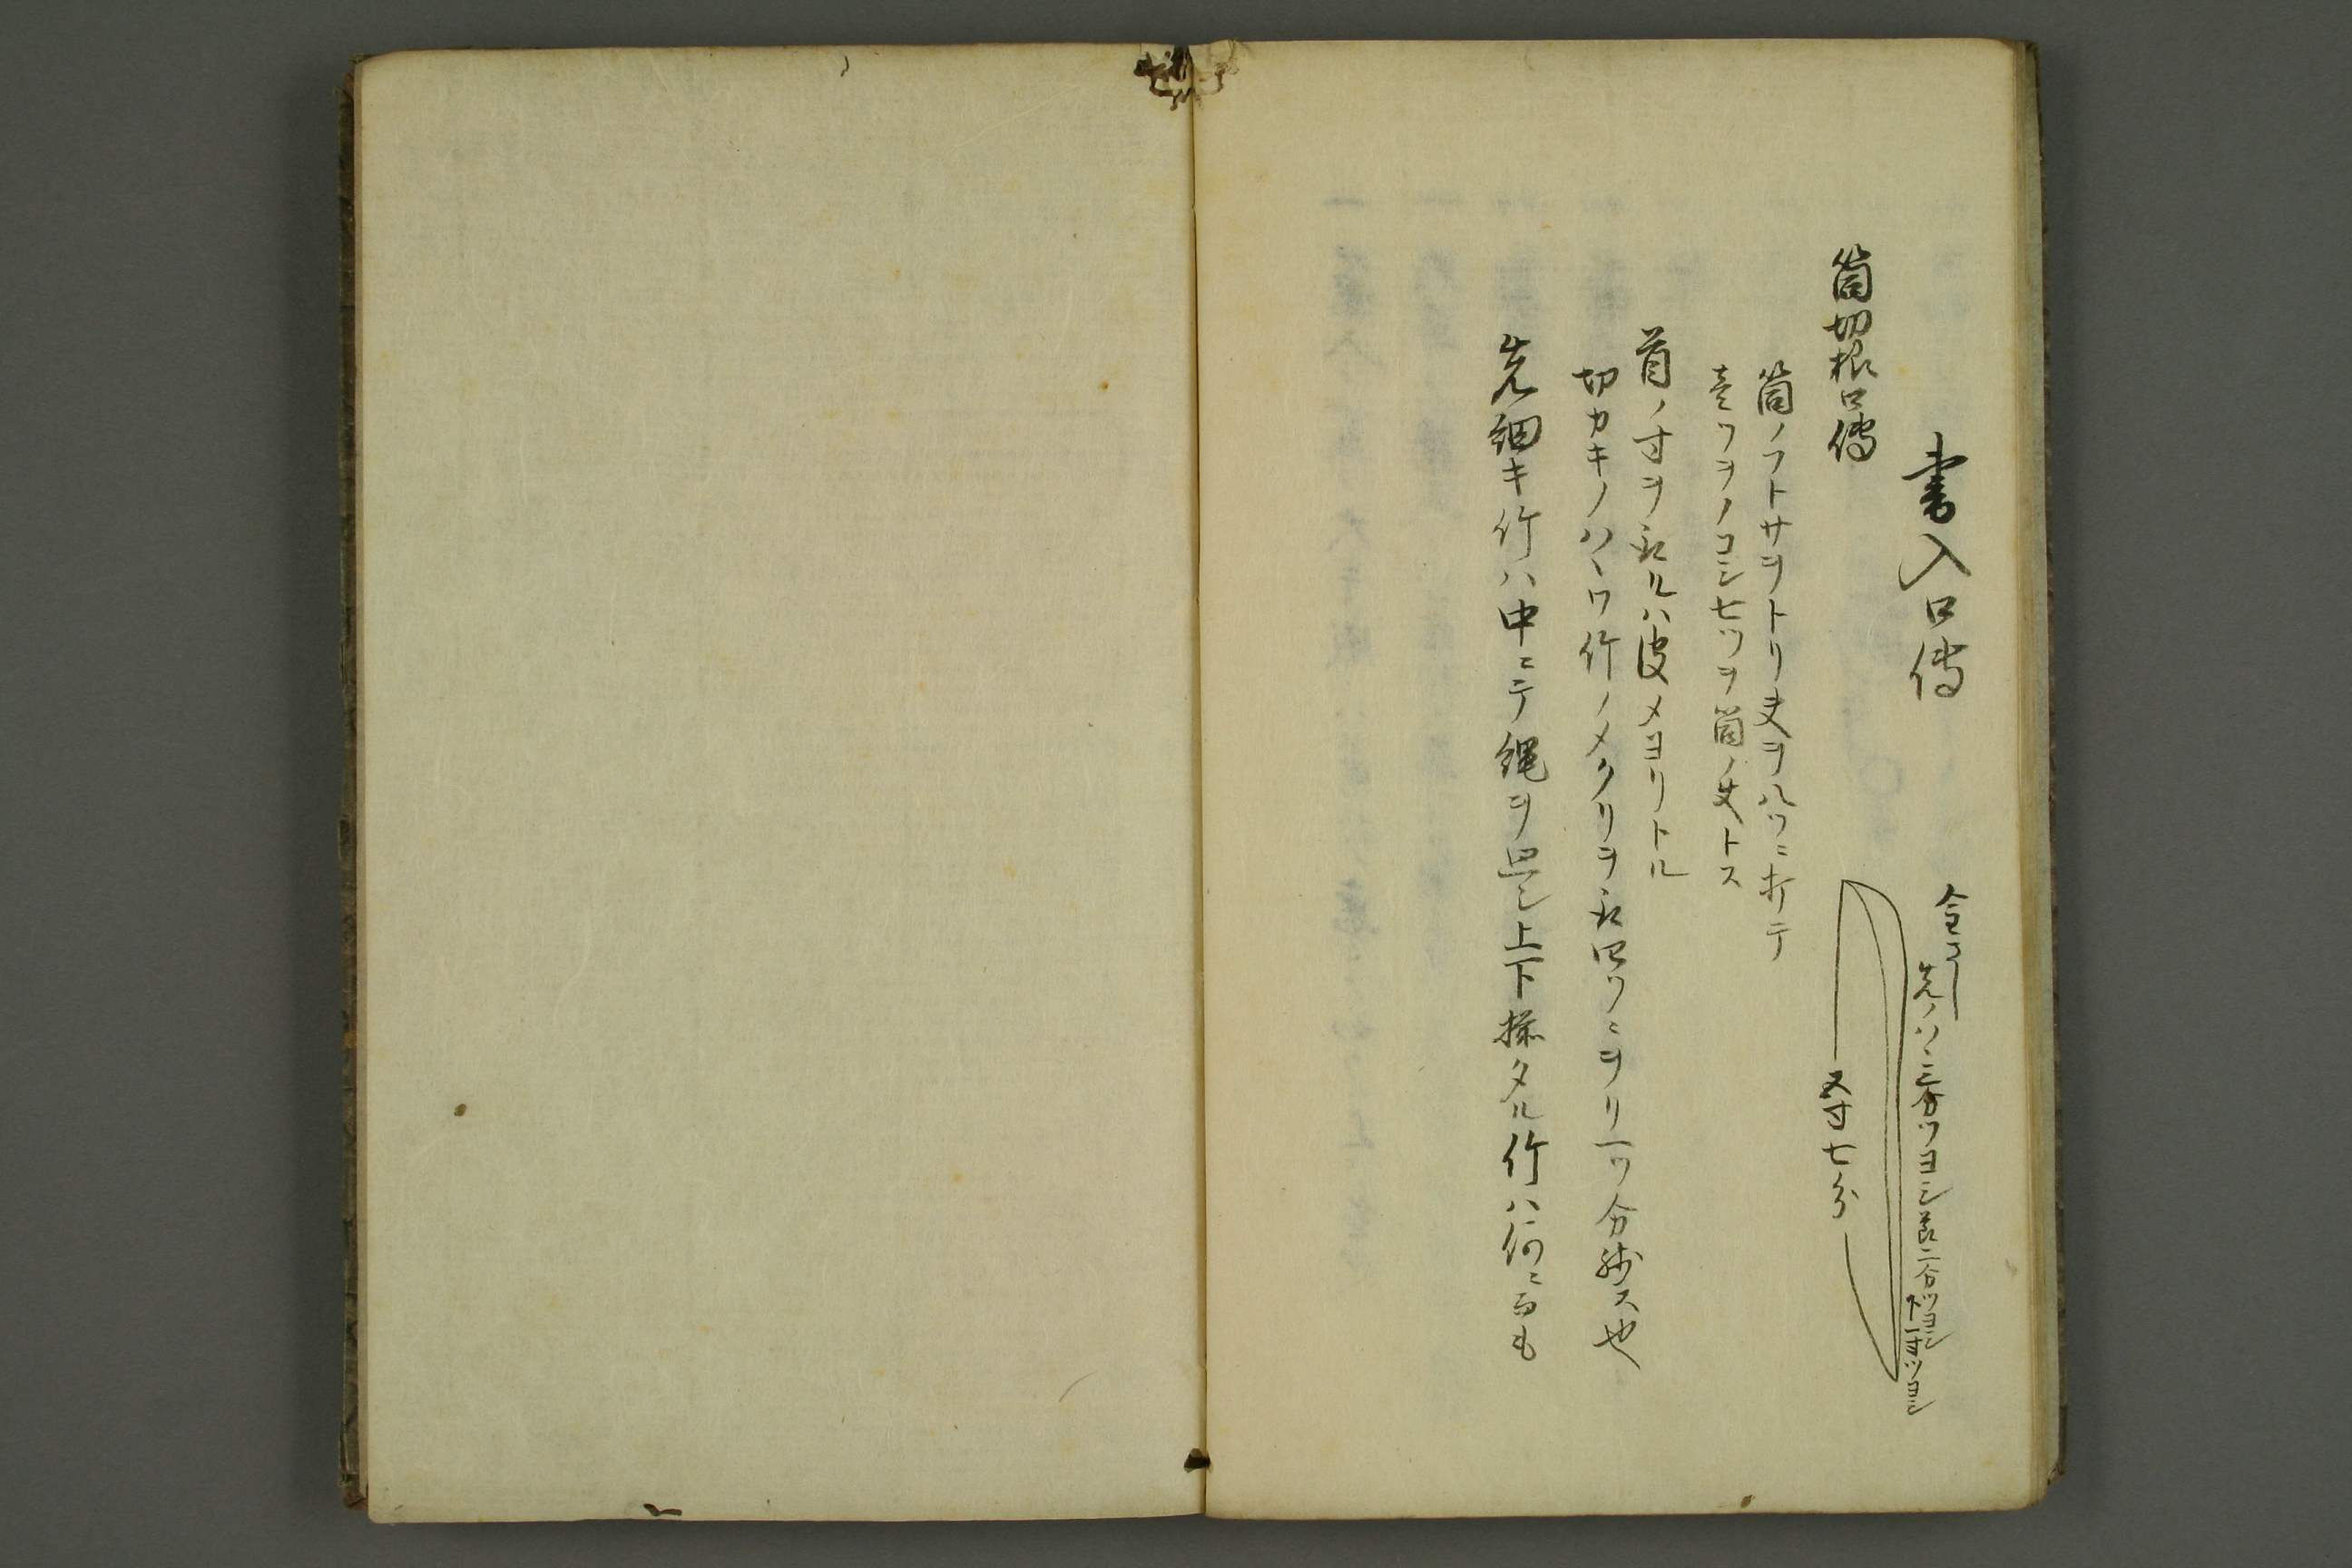 書入口傳
先ノハヽ三分ツヨシ
二分ツヨシ
下一寸ツヨシ
五寸七分
筒切根口傳
筒ノフトサヲトリ夫ヲ八ツニ折テ
壹ツヲノコシ七ツヲ筒ノ丈トス
首ノ寸ヲ取ルハ皮メヨリトル
切カキノハヽワ竹ノメクリヲ取四ツニヲリ一ツ分
先細キ竹ハ中ニテ縄ヲ上下タル竹ハ何ニ而も